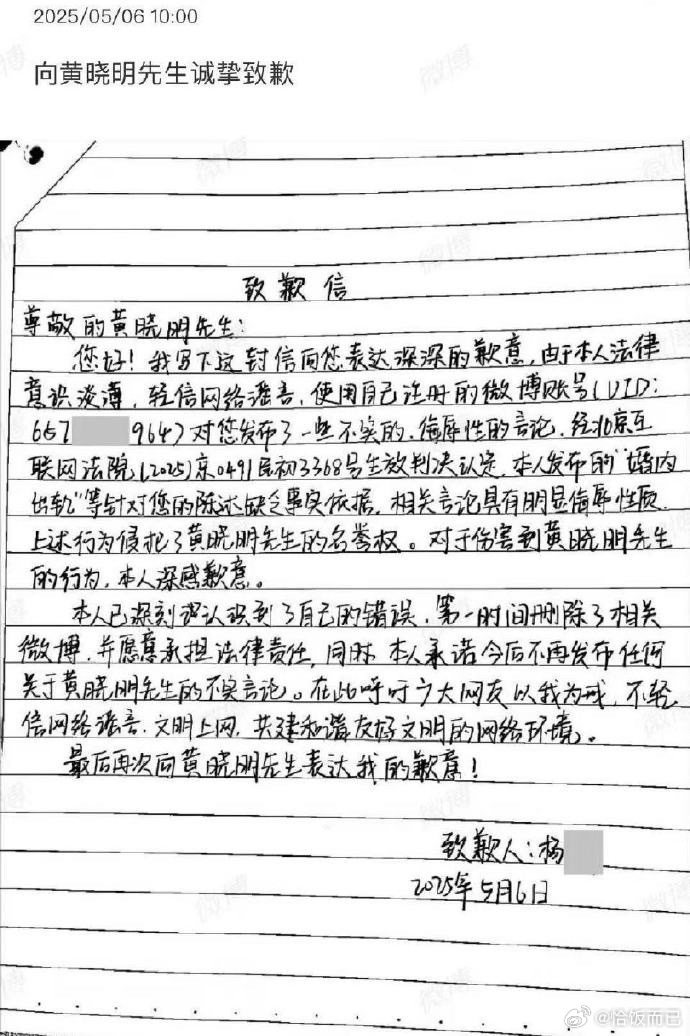 2025/05/06 10:00
向黄晓明先生诚挚致歉
致歉信
尊敬的黄晓明先生:
您好!我写下这封信向您表达深深的歉意,由于本人法律
意识淡薄,轻信网络谣言,使用自己注册的微博账号(UID:
657 9647 对您发布了一些不实的、侮辱性的言论,经北京互
联网法院(2025)京0491民初3368号生效判决认定,本人发布的"婚内
出轨"等针对您的陈述缺乏事实依据,相关言论具有明显侮辱性质,
上述行为侵犯了黄晓明先生的名誉权。对于伤害到黄晓明先生
的行为,本人深感歉意。
本人已深刻认识到了自己的错误,第一时间删除了相关
微博,并愿意承担法律责任,同时,本人承诺今后不再发布任何
关于黄晓明先生的不实言论。在此呼吁广大网友以我为戒,不轻
信网络谣言,文明上网,共建和谐友好文明的网络环境。
最后再次向黄晓明先生表达我的歉意!
致歉人:杨
2025年5月6日
微博
@恰饭而已